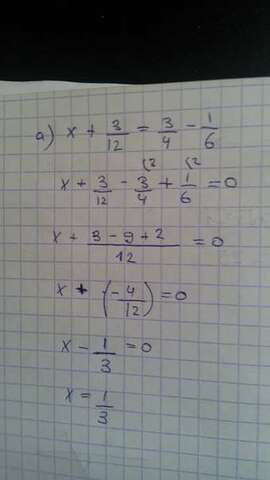 a) x + 3/12 = 3/4 - 1/6
x + 3/12 - 3/4 + 1/6 = 0
x + (3 - 9 + 2)/12 = 0
x + (-4/12) = 0
x - 1/3 = 0
x = 1/3